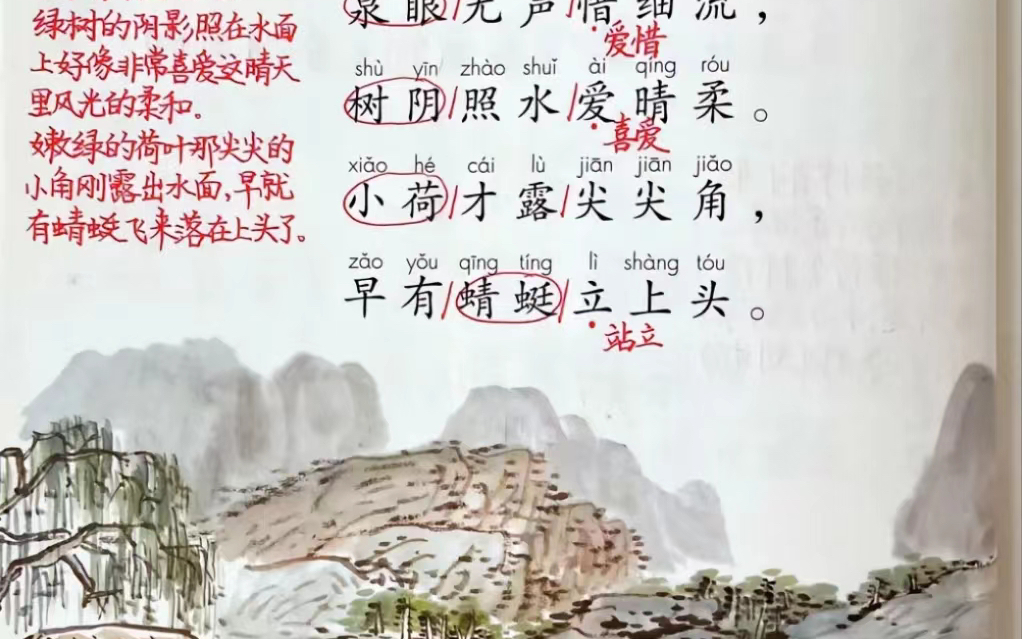 泉眼/无声/惜细流，
爱惜
shù yīn zhào shuǐ ài qíng róu
树阴/照水/爱晴柔。
喜爱
xiǎo hé cái lù jiān jiān jiǎo
小荷/才露/尖尖角，
zǎo yǒu qīng tíng lì shàng tóu
早有/蜻蜓/立上头。
站立
绿树的阴影,照在水面
上好像非常喜爱这晴天
里风光的柔和。
嫩绿的荷叶那尖尖的
小角刚露出水面,早就
有蜻蜓飞来落在上头了。